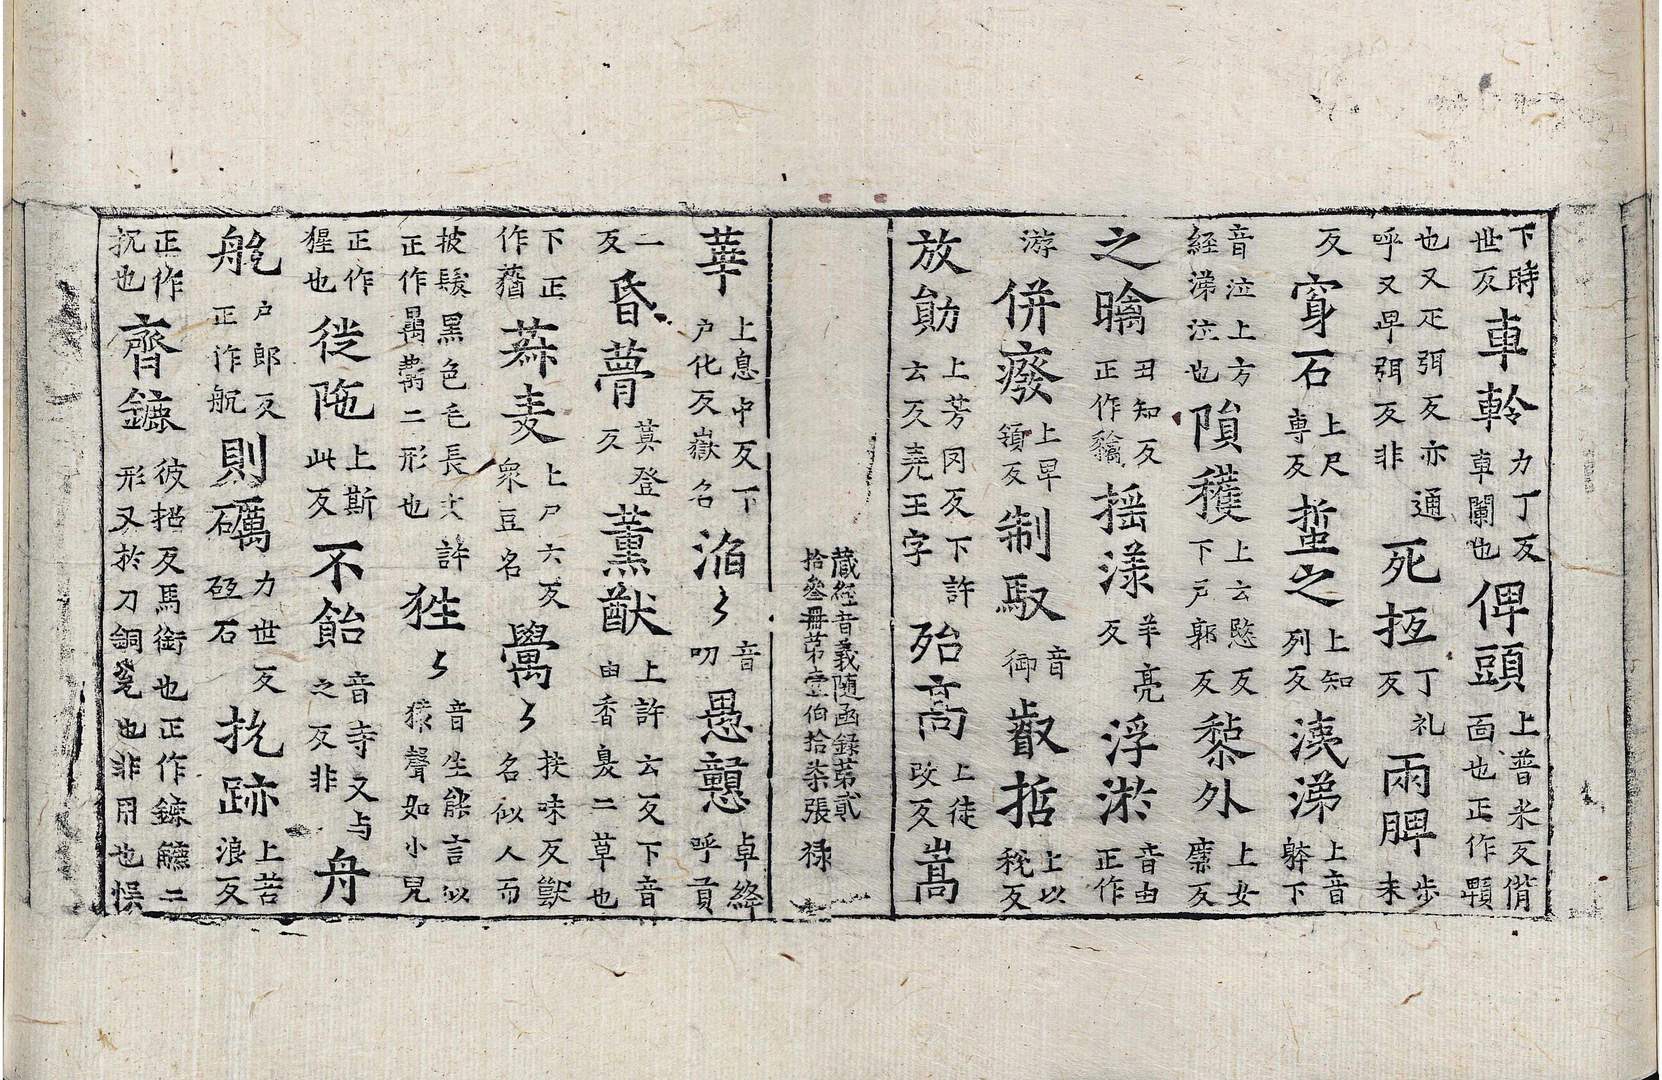 下時世反車軨力丁反車闌也俾頭上普米反偝面也正作顊
也又疋弭反亦通呼又卑弭反非死抂丁礼反兩脾步未
反穿石上尺專反蜇之上知列反洟涕上音躰下
音泣上方経涕泣也隕穫上云愍反下户郭反黎外上女黨反
之䁮丑知反正作黐揺漾羊亮反浮淤音由正作
游併癈上卑領反制馭音御叡哲上以稅反
放勛上芳冈反下許云反尭王字殆高上徒改反嵩
藏経音義随函録苐貳拾叄冊苐壹伯拾柒張 禄
華上息中反下户化反嶽名淊〻音叨愚戇卓絳呼貢
二反昏瞢莫登反薰猷上許云反下音由香臭二草也
下正作蕕菽麦上尸六反衆豆名䍺〻扶味反獣名似人而
披髮黒色毛長丈許正作𥜿䍺二形也狌〻音生能言似猿聲如小兒
正作猩也徙陁上斯此反不飴音寺又与之反非舟
舧户郎反正作舤則礪力世反砺石扢跡上苦浪反
正作抗也齊鑣彼苗反馬銜也正作鑣䤌二形又於刀銅瓮也非用也悮